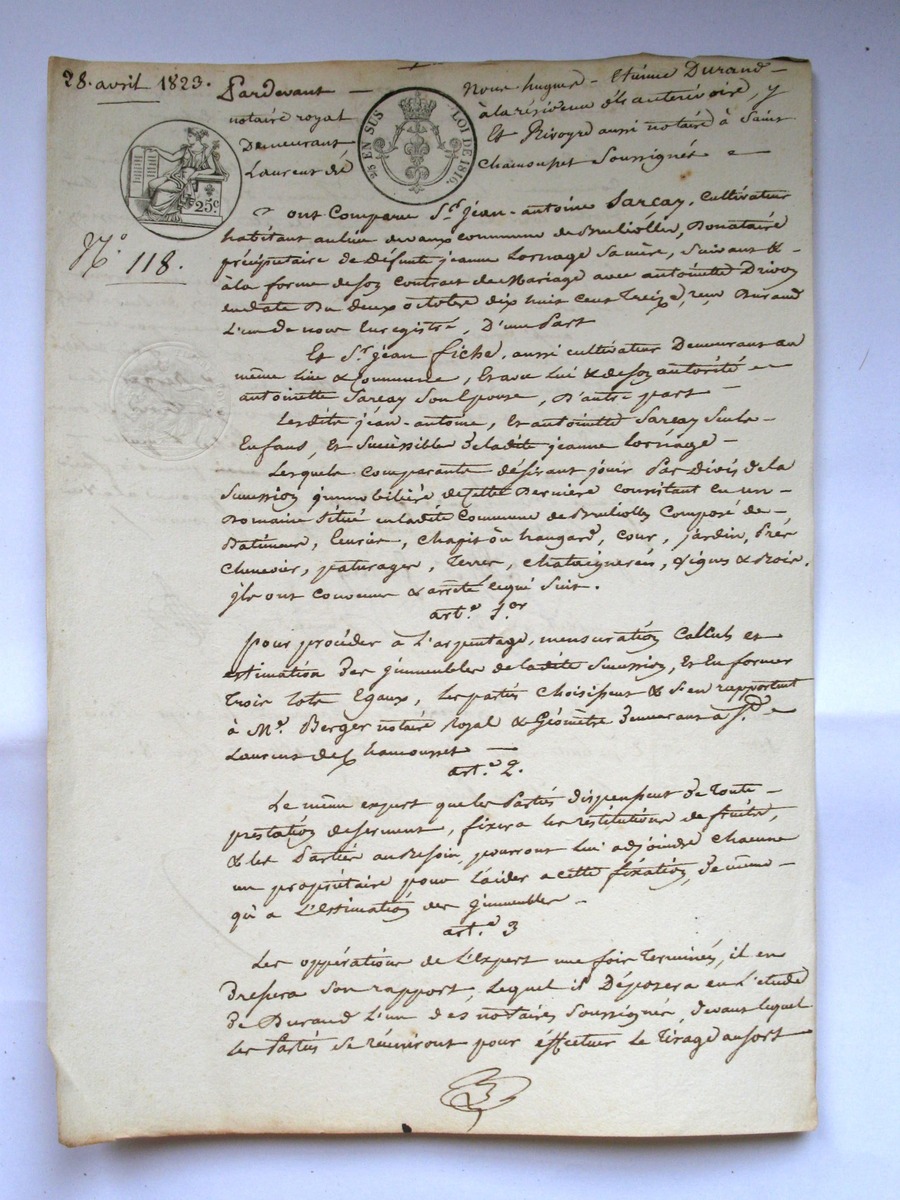 28. avril 1823.
Pardevant — Nous hugues - Etienne Durand -
notaire royal à la résidence de y
Demeurant Et Rivoyre aussi notaire à Saint
Laurent de Chamousset Soussignés -
25 EN SUS LOI DE 1816.
25c
N.° 118.
ont Comparu S.r Jean-antoine Sarcay, Cultivateur
habitant au lieu de vaux commune de Brullioles, Donataire
préciputaire de Défunte jeanne Lornage Sa mère, Suivant &
à la forme de Son Contrat de Mariage avec antoinette Drivon
en date Du deux octobre dix huit Cent Treize, reçu Durand
L'un de nous Enregistré, D'une Part
Et S.r jean fiche, aussi cultivateur Demeurant au
même lieu & Commune, Et avec Lui & de Son autorité -
antoinette Sarcay Son Epouse, D'autre part -
Lesdits jéan-antoine, Et antoinette Sarcay Seuls -
Enfans, Et Succéssible de ladite jeanne Lornage -
Lesquels comparants désirant jouir Par Divis de la
Succession jmmobilière de cette Dernière consistant en un -
Domaine Situé en ladite Commune de Brullioles Composé de -
Batimens, Ecurie, Chapit ou hangard, Cour, jardin, Prés
Chenevier, paturages, Terres, Chataigneraies, Vignes & Bois.
jls ont Convenu & arrêté ce qui Suit.
art.e 1.er
Pour procéder à L'arpentage, mensuration Calculs et
estimation des jmmeubles de ladite Succession, Et En former
Trois lots Egaux, les partiés Choisissent & S'en rapportent
à M.e Berger notaire Royal & Géomètre Demeurant à S.t -
Laurent de Chamousset -
art.e 2.
Le même expert que les Partiés dispensent de Toute -
prestation de serment, fixera les réstitutions de fruits,
& les Partiés au Besoin pourront Lui adjoindre Chacune
un propriétaire pour L'aider a cette fixation, de même -
qu'a L'Estimation des jmmeubles -
art.e 3
Les oppérations de L'Expert une fois Terminés, il en
Dressera Son rapport, Lequel il Déposera en L'étude
de Durand L'un des notaires Soussignés, devant lequel
les Partiés Se réuniront pour éffectuer Le Tirage au Sort